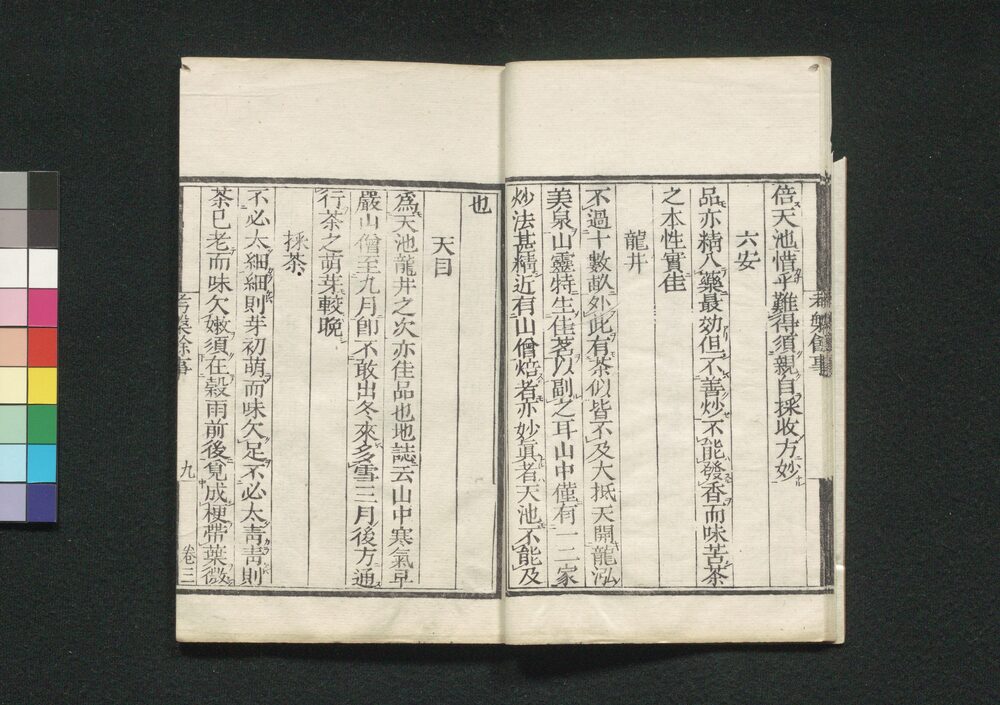 倍天池惜乎難得須親自採收方妙
六安
品亦精入藥最効但不善炒不能發香而味苦茶
之本性實佳
龍井
不過十數畝外此有茶似皆不及大抵天開龍泓
美泉山靈特生佳茗以副之耳山中僅有一二家
炒法甚精近有山僧焙者亦妙眞者天池不能及
也
天目
爲天池龍井之次亦佳品也地誌云山中寒氣早
嚴山僧至九月卽不敢出冬來多雪三月後方通
行茶之萌芽較晚
採茶
不必太細細則芽初萌而味欠足不必太靑靑則
茶已老而味欠嫩須在穀雨前後覓成梗帶葉微
九
卷三